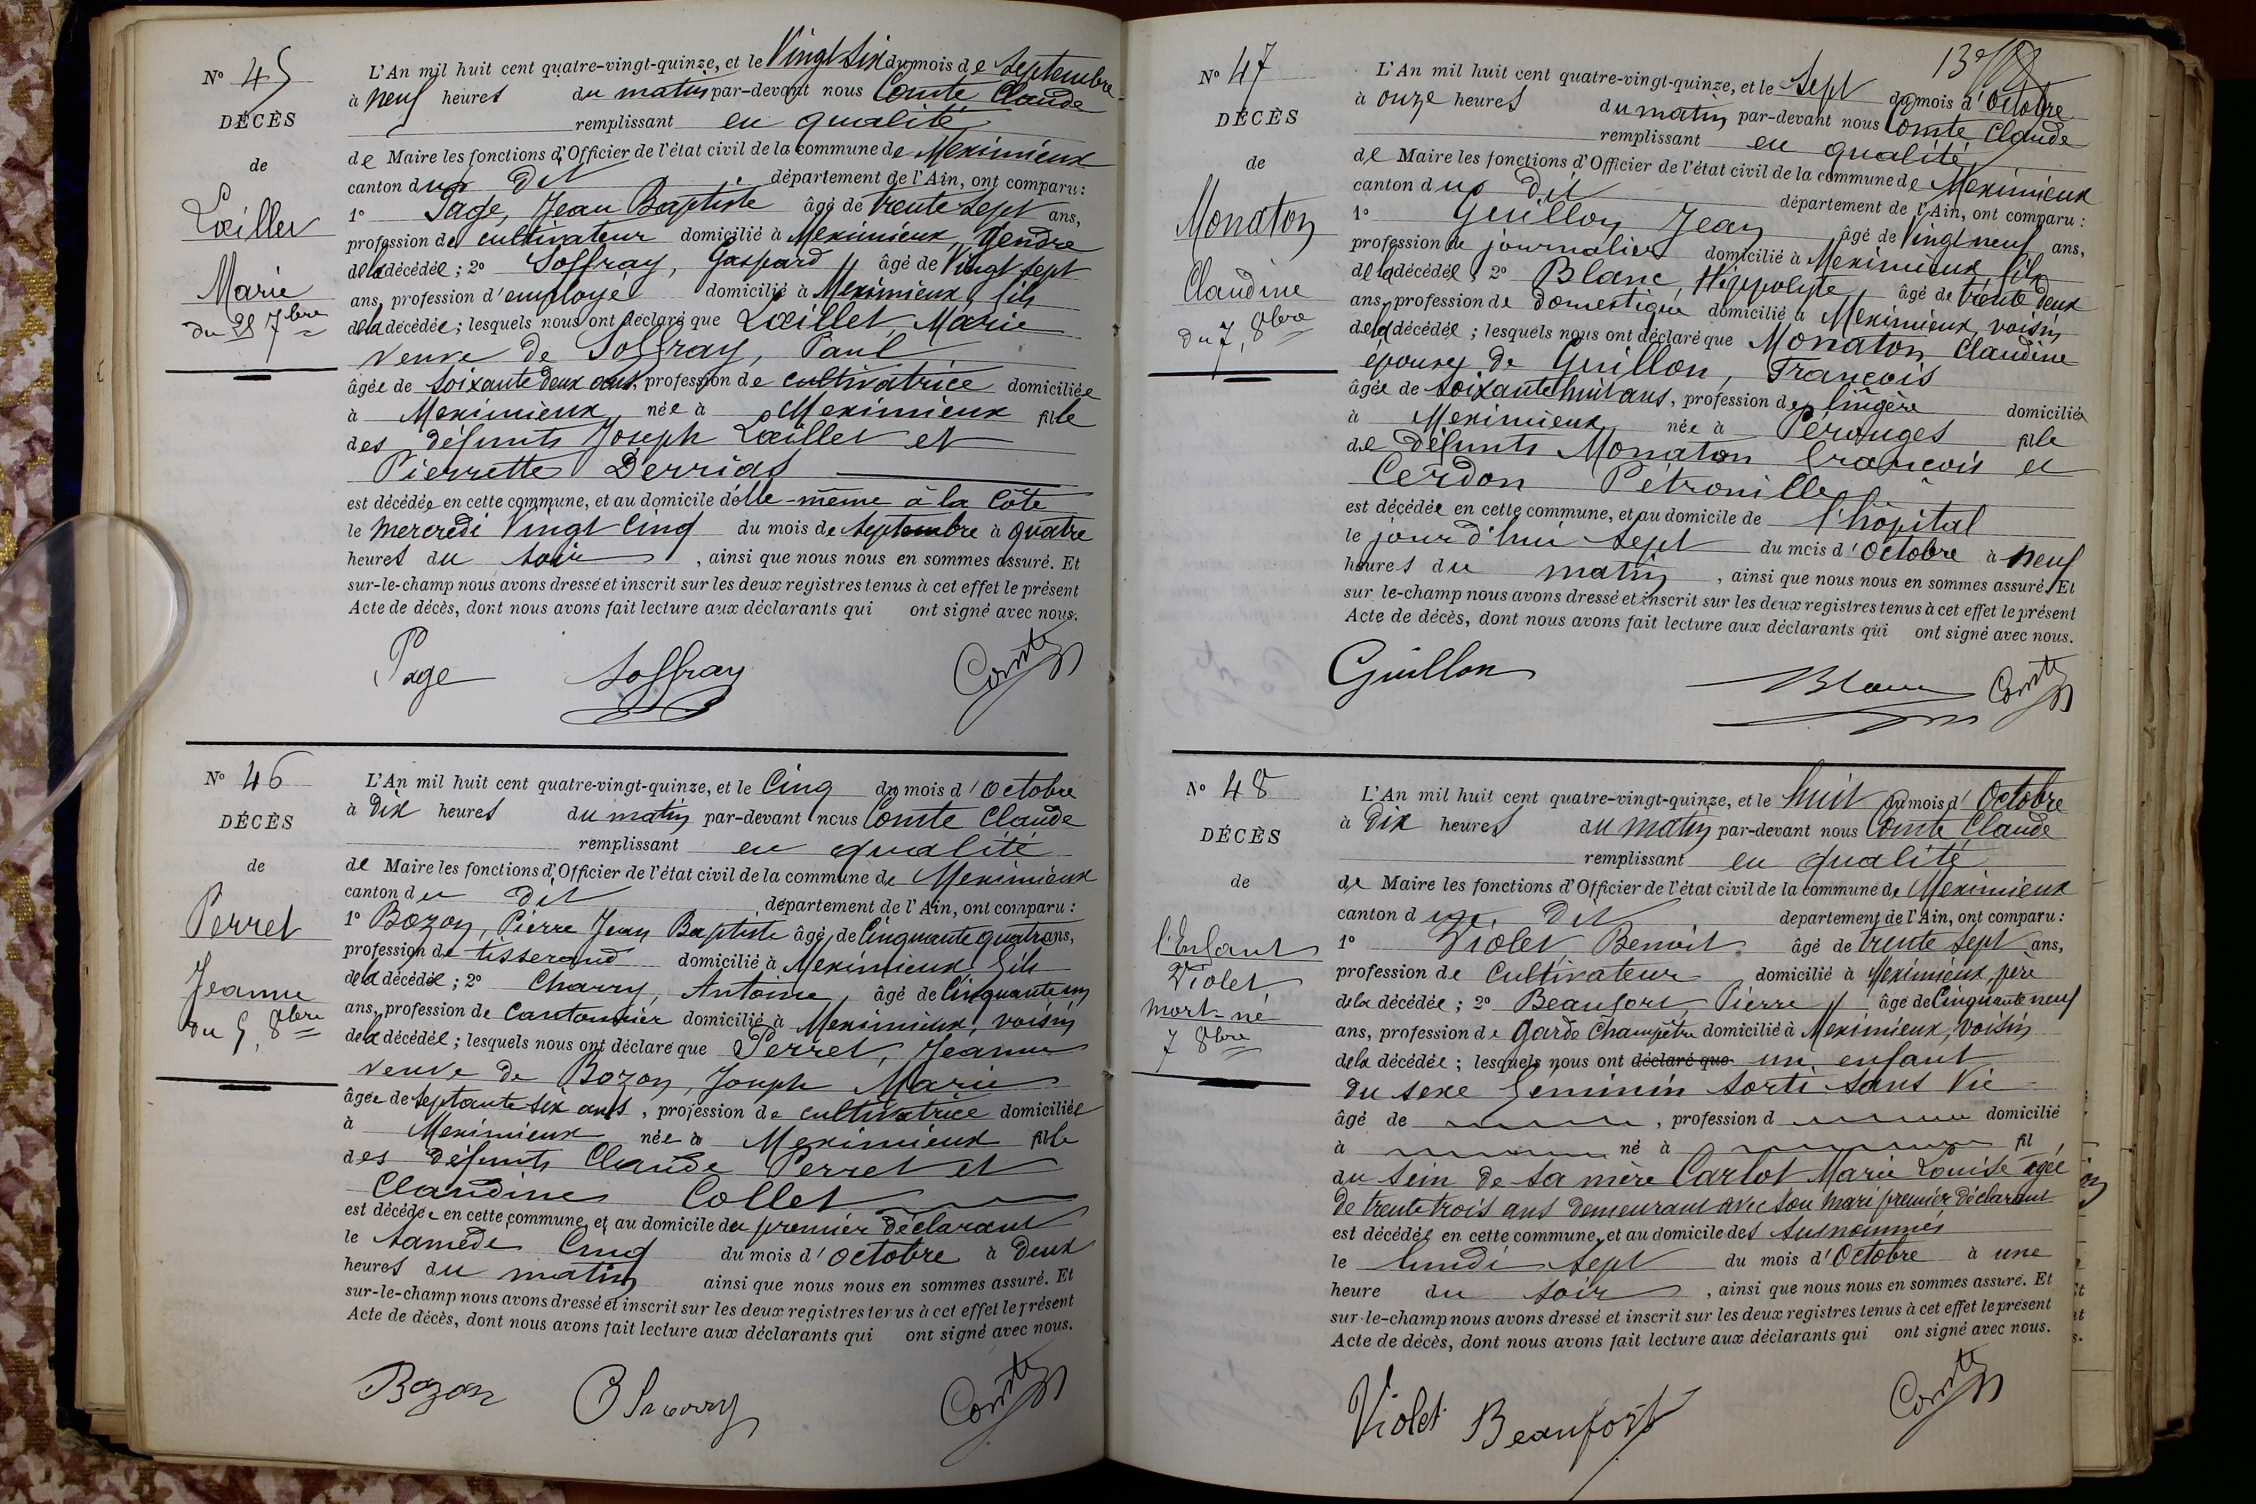 N° 45
DÉCÈS
de
Lœillet
Marie
du 25 7bre
L'An mil huit cent quatre-vingt-quinze, et le Vingt Six du mois de Septembre
à neuf heures du matin par-devant nous Comte Claude
remplissant en qualité
de Maire les fonctions d'Officier de l'état civil de la commune de Meximieux
canton du dit département de l'Ain, ont comparu:
1° Page, Jean Baptiste âgé de trente sept ans,
profession de cultivateur domicilié à Meximieux, gendre
de la décédée; 2° Soffray, Gaspard âgé de Vingt sept
ans, profession d'employé domicilié à Meximieux, fils
de la décédée; lesquels nous ont déclaré que Lœillet, Marie
veuve de Soffray, Paul
âgée de soixante deux ans, profession de cultivatrice domiciliée
à Meximieux née à Meximieux fille
des défunts Joseph Lœillet et
Pierrette Derrias
est décédée en cette commune, et au domicile d'elle-même à la Côte
le mercredi Vingt Cinq du mois de septembre à quatre
heures du soir, ainsi que nous nous en sommes assuré. Et
sur-le-champ nous avons dressé et inscrit sur les deux registres tenus à cet effet le présent
Acte de décès, dont nous avons fait lecture aux déclarants qui ont signé avec nous.
Page Soffray Comte
N° 46
DÉCÈS
de
Perret
Jeanne
du 5, 8bre
L'An mil huit cent quatre-vingt-quinze, et le Cinq du mois d'Octobre
à Dix heures du matin par-devant nous Comte Claude
remplissant en qualité
de Maire les fonctions d'Officier de l'état civil de la commune de Meximieux
canton du dit département de l'Ain, ont comparu:
1° Bozon, Pierre Jean Baptiste âgé de Cinquante quatre ans,
profession de tisserand domicilié à Meximieux, fils
de la décédée; 2° Charry, Antoine, âgé de Cinquante un
ans, profession de Cantonnier domicilié à Meximieux, voisin
de la décédée; lesquels nous ont déclaré que Perret, Jeanne
veuve de Bozon, Joseph Marie
âgée de septante six ans, profession de cultivatrice domiciliée
à Meximieux née à Meximieux fille
des défunts Claude Perret et
Claudine Collet
est décédée en cette commune, et au domicile du premier déclarant
le samedi Cinq du mois d'octobre à Deux
heures du matin ainsi que nous nous en sommes assuré. Et
sur-le-champ nous avons dressé et inscrit sur les deux registres tenus à cet effet le présent
Acte de décès, dont nous avons fait lecture aux déclarants qui ont signé avec nous.
Bozon Charry Comte
N° 47
DÉCÈS
de
Monaton
Claudine
du 7, 8bre
L'An mil huit cent quatre-vingt-quinze, et le Sept du mois d'Octobre
à onze heures du matin par-devant nous Comte Claude
remplissant en qualité
de Maire les fonctions d'Officier de l'état civil de la commune de Meximieux
canton du dit département de l'Ain, ont comparu:
1° Guillon Jean âgé de Vingt neuf ans,
profession de journalier domicilié à Meximieux, fils
de la décédée; 2° Blanc, Hippolyte, âgé de trente deux
ans, profession de domestique domicilié à Meximieux, voisin
de la décédée; lesquels nous ont déclaré que Monaton Claudine
épouse de Guillon, François
âgée de soixante huit ans, profession de lingère domiciliée
à Meximieux née à Perouges fille
de défunts Monaton François et
Cerdon Pétronille
est décédée en cette commune, et au domicile de l'hôpital
le jourd'hui Sept du mois d'octobre à neuf
heures du matin, ainsi que nous nous en sommes assuré. Et
sur le-champ nous avons dressé et inscrit sur les deux registres tenus à cet effet le présent
Acte de décès, dont nous avons fait lecture aux déclarants qui ont signé avec nous.
Guillon Blanc Comte
N° 48
DÉCÈS
de
l'Enfant
Violet
mort-né
7 8bre
L'An mil huit cent quatre-vingt-quinze, et le huit du mois d'Octobre
à Dix heures du matin par-devant nous Comte Claude
remplissant en qualité
de Maire les fonctions d'Officier de l'état civil de la commune de Meximieux
canton du dit département de l'Ain, ont comparu:
1° Violet, Benoit âgé de trente sept ans,
profession de Cultivateur domicilié à Meximieux, père
de la décédée; 2° Beaufort, Pierre âgé de Cinquante neuf
ans, profession de garde Champêtre domicilié à Meximieux, voisin
de la décédée; lesquels nous ont déclaré que un enfant
du sexe féminin sorti sans vie
âgé de , profession d domicilié
à né à fil
du sein de sa mère Carlot Marie Louise agée
de trente trois ans demeurant avec son mari premier déclarant
est décédée en cette commune, et au domicile des susnommés
le lundi sept du mois d'Octobre à une
heure du soir, ainsi que nous nous en sommes assuré. Et
sur-le-champ nous avons dressé et inscrit sur les deux registres tenus à cet effet le présent
Acte de décès, dont nous avons fait lecture aux déclarants qui ont signé avec nous.
Violet Beaufort Comte